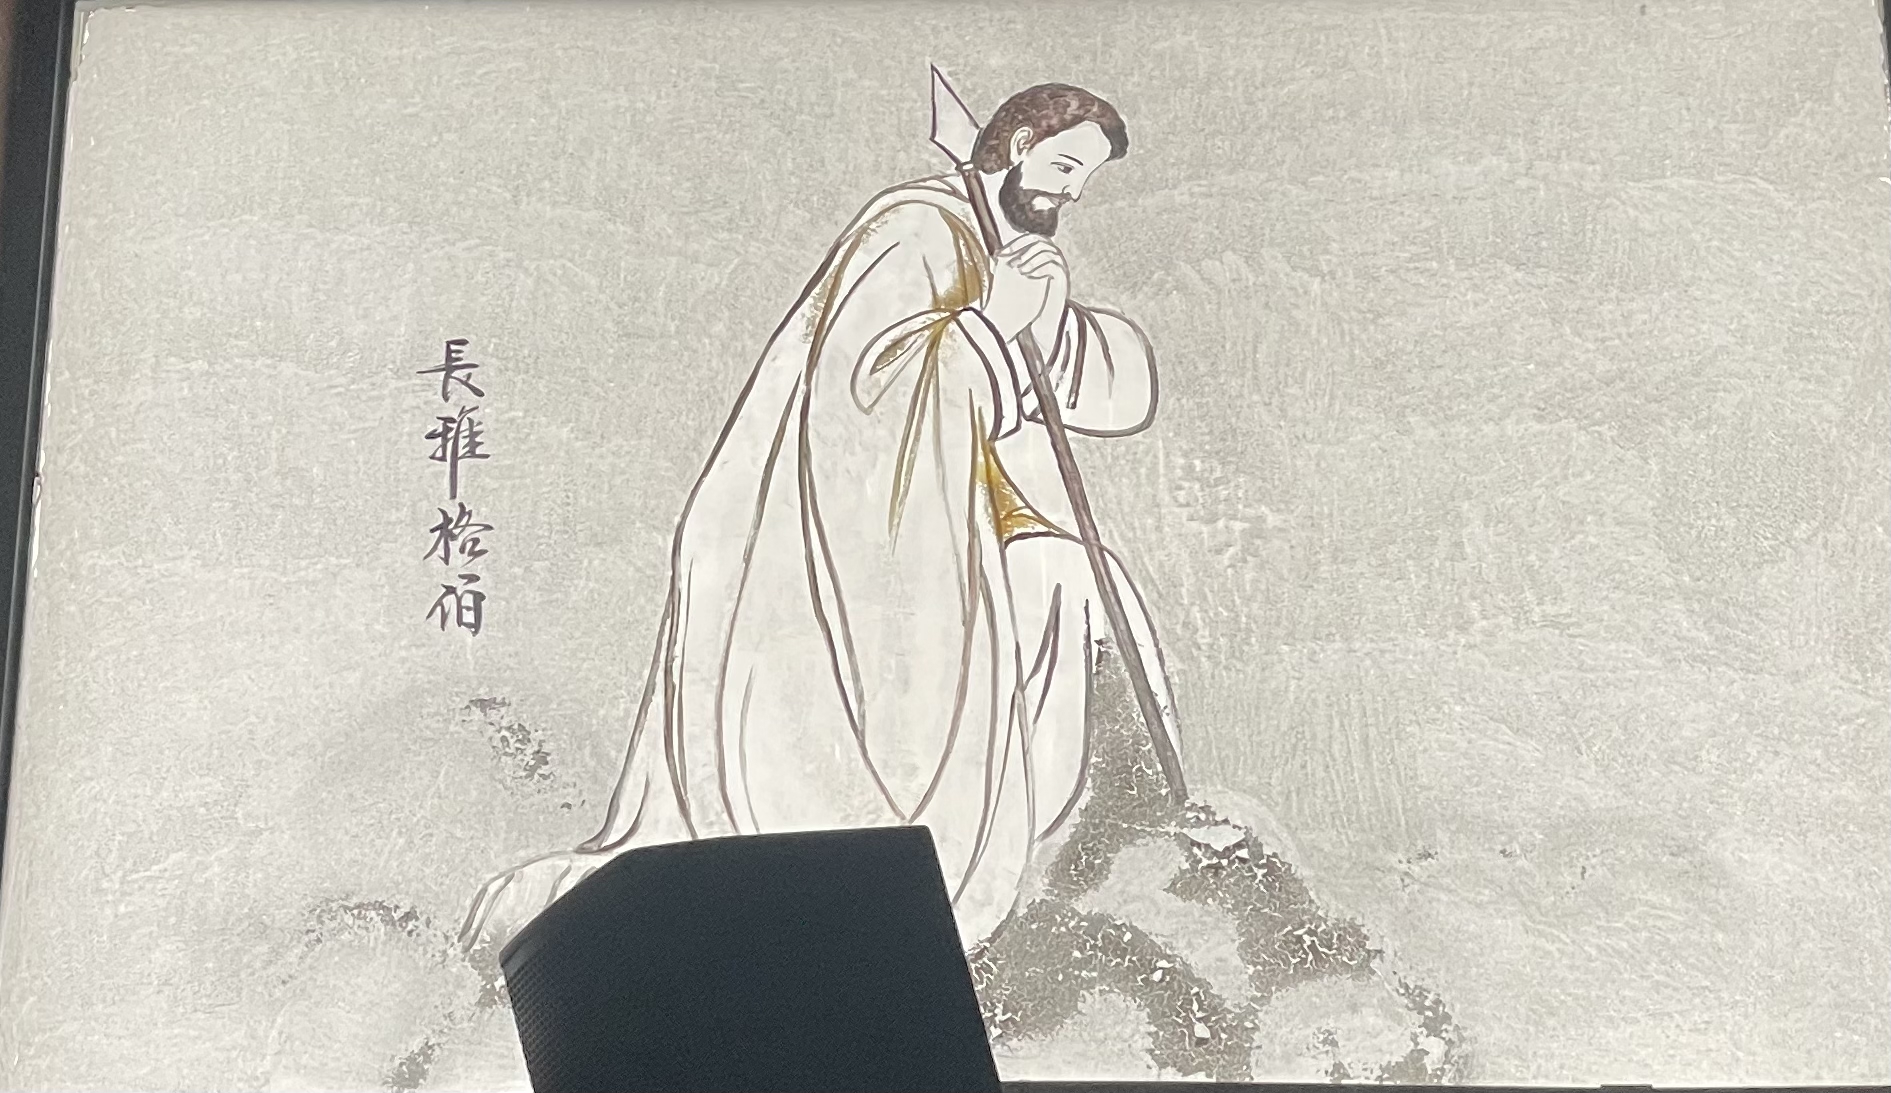 長雅格伯